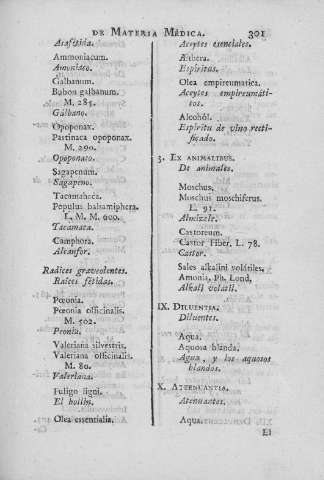 DE MATERIA MÉDICA. 301
Asafétida.
Ammoniacum.
Amoniaco.
Galbanum.
Bubon galbanum.
M. 285.
Gálbano.
Opoponax.
Pastinaca opoponax.
M. 290.
Opoponaco.
Sagapenum.
Sagapeno.
Tacamahaca.
Populus balsamiphera.
L. M. M. 600.
Tacamaca.
Camphora.
Alcanfor.
Radices graveolentes.
Raíces fétidas.
Pœonia.
Pœonia officinalis.
M. 502.
Peonía.
Valeriana silvestris.
Valeriana officinalis.
M. 80.
Valeriana.
Fuligo ligni.
El hollin.
Olea essentialia.
Aceytes esenciales.
Æthera.
Espíritus.
Olea empireumatica.
Aceytes empireumáti-
cos.
Alcohól.
Espíritu de vino recti-
ficado.
3. EX ANIMALIBUS.
De animales.
Moschus.
Moschus moschiferus.
L. 91.
Almizcle.
Castoreum.
Castor Fiber. L. 78.
Castor.
Sales alkalini volátiles.
Amonia, Ph. Lond.
Alkali volatil.
IX. DILUENTIA.
Diluentes.
Aqua.
Aquosa blanda.
Agua, y los aquosos
blandos.
X. ATTENUANTIA.
Atenuantes.
Aqua.
El